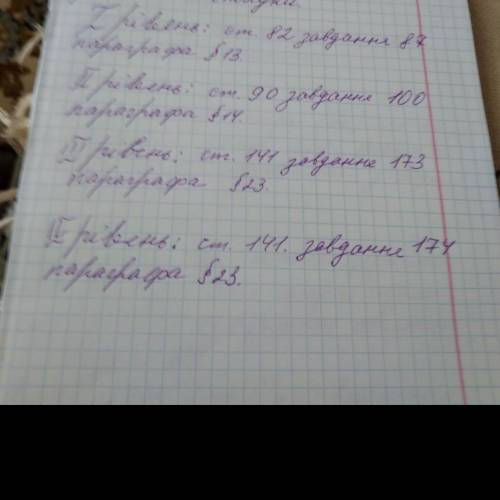 I рівянь: ст. 82 завдання 87
параграфа § 13.
II рівянь: ст. 90 завдання 100
параграфа § 14.
III рівень: ст. 141 завдання 173
параграфа § 23.
рівянь: ст. 141. завдання 174
параграфа § 23.